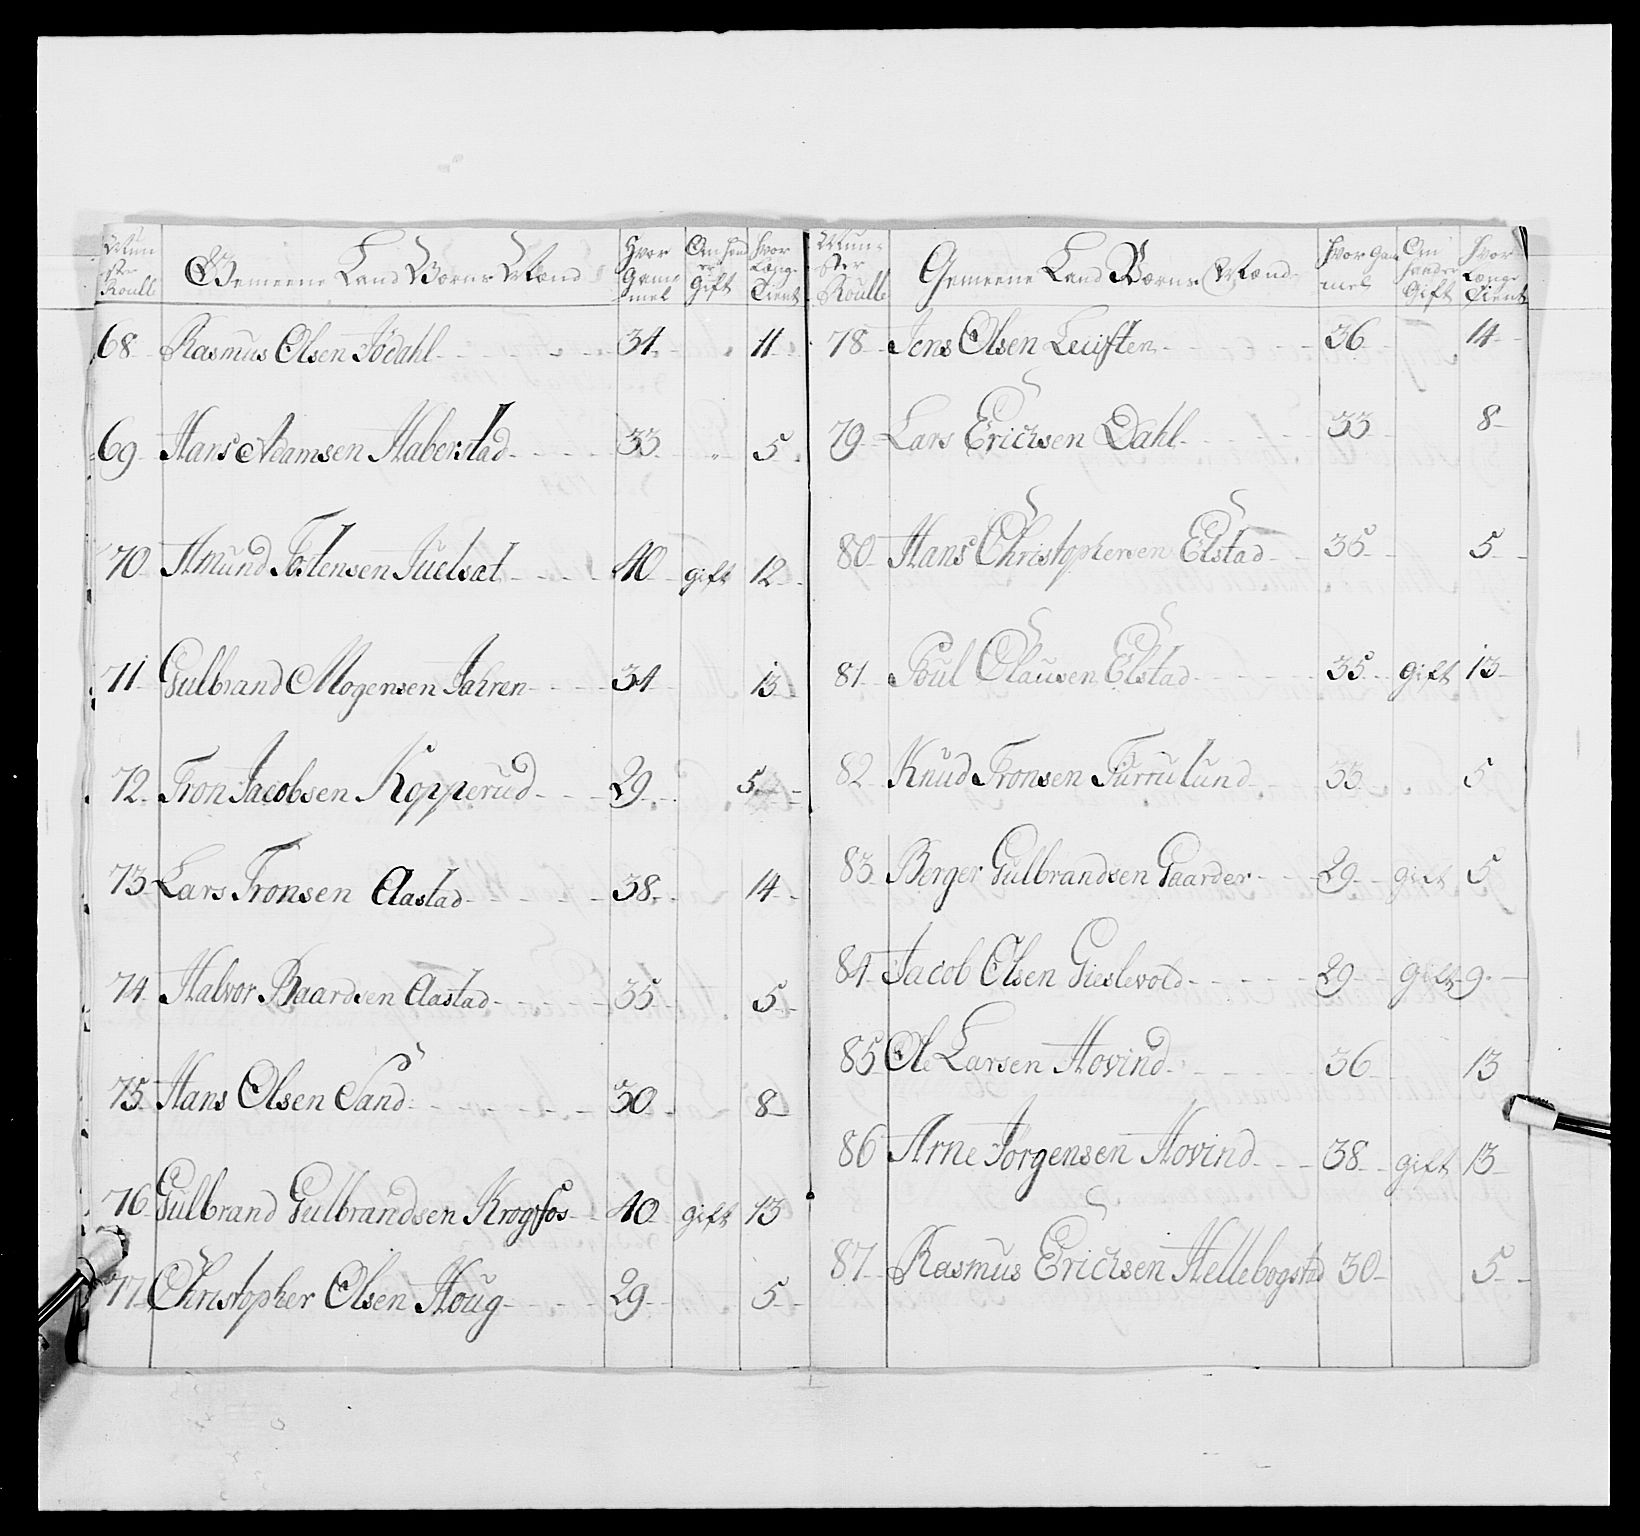 Mun
ster
Roull
Gemeene Land Værns Mænd
Hvor
Gam
mel
Om hand
er
Gift
Hvor
Længe
Tient
68 Rasmus Olsen Jödahl 34 11
69 Hans Adamsen Haberstad 33 " 5
70 Amund Tostensen Juelsæt 40 gift 12
71 Gulbrand Mogensen Jahren 34 13
72 Tron Jacobsen Kopperud 29 5
73 Lars Tronsen Aastad 38 14
74 Halvor Baardsen Aastad 35 5
75 Hans Olsen Sand 30 8
76 Gulbrand Gulbrandsen Krogsfos 40 gift 13
77 Christopher Olsen Houg 29 5
Mun-
ster
Roulle
Gemeene LandVærns Mænd
Hvor Gam
mel
Om
hand er
Gift
Hvor
Længe
Tient
78 Jens Olsen Leuften 36 14
79 Lars Erichsen Dahl 33 8
80 Hans Christophersen Elstad 35 5
81 Poul Clausen Elstad 35 gift 13
82 Knud Tronsen Furrulund 33 5
83 Berger Gulbrandsen Gaarder 29 gift 5
84 Jacob Olsen Gieslevold 29 gift 9
85 Ole Larsen Hovind 36 13
86 Arne Jörgensen Hovind 38 gift 13
87 Rasmus Erichsen Hellebogstad 30 5